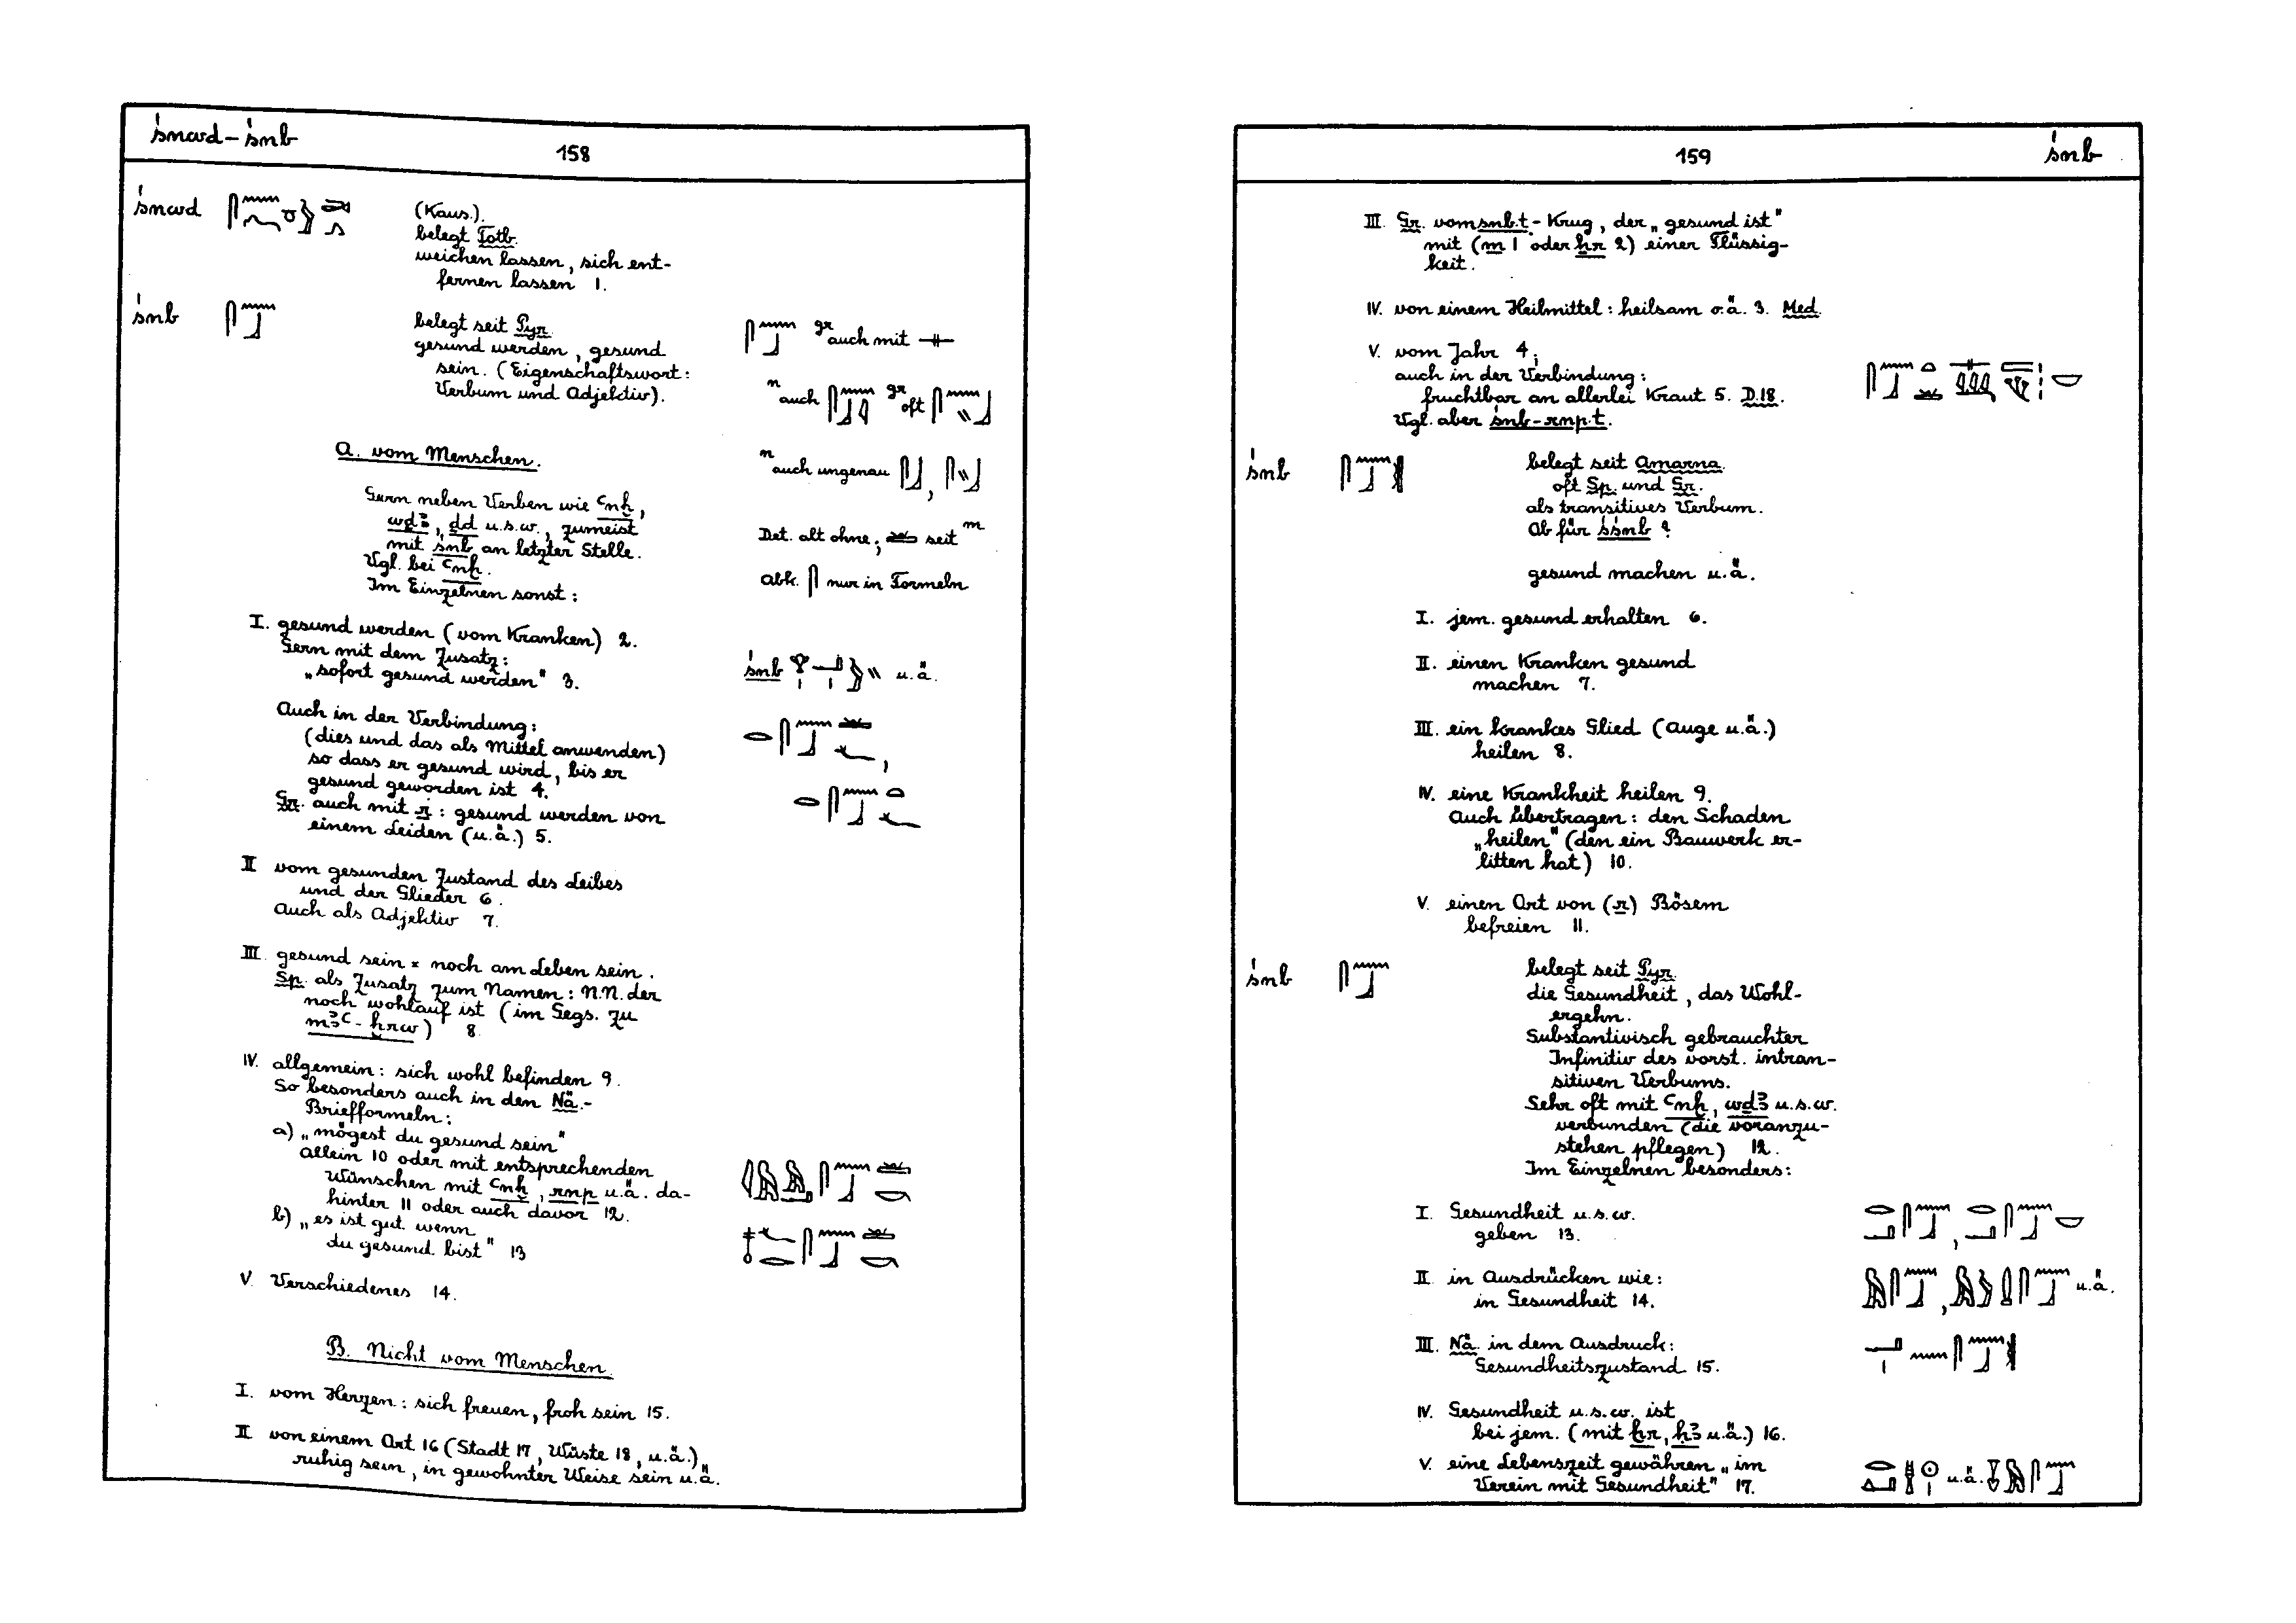 śnwd – śnb
158
śnwd
(Kaus.).
belegt Totb.
weichen lassen, sich ent-
fernen lassen 1.
śnb
belegt seit Pyr.
gesund werden, gesund
sein. (Eigenschaftswort:
Verbum und Adjektiv).
gr auch mit
n auch gr oft
n auch ungenau ,
Det. alt ohne; seit m
Abk. nur in Formeln
A. vom Menschen.
Gern neben Verben wie ꜥnḫ,
wḏꜣ, ḏd u.s.w., zumeist
mit śnb an letzter Stelle.
Vgl. bei ꜥnḫ.
Im Einzelnen sonst:
I. gesund werden (vom Kranken) 2.
Gern mit dem Zusatz:
„sofort gesund werden" 3.
śnb u.ä.
Auch in der Verbindung:
(dies und das als Mittel anwenden)
so dass er gesund wird, bis er
gesund geworden ist 4.
Gr. auch mit r: gesund werden von
einem Leiden (u.ä.) 5.
II vom gesunden Zustand des Leibes
und der Glieder 6.
Auch als Adjektiv 7.
III. gesund sein = noch am Leben sein.
Sp. als Zusatz zum Namen: N.N. der
noch wohlauf ist (im Gegs. zu
mꜣꜥ-ḫrw) 8.
IV. allgemein: sich wohl befinden 9.
So besonders auch in den Nä.-
Briefformeln:
a) „mögest du gesund sein"
allein 10 oder mit entsprechenden
Wünschen mit ꜥnḫ, rnp u.ä. da-
hinter 11 oder auch davor 12.
b) „es ist gut, wenn
du gesund bist" 13
V. Verschiedenes 14.
B. Nicht vom Menschen.
I. vom Herzen: sich freuen, froh sein 15.
II von einem Ort 16 (Stadt 17, Wüste 18, u.ä.),
ruhig sein, in gewohnter Weise sein u.ä.
159
śnb
III. Gr. vom snb.t-Krug, der „gesund ist"
mit (m 1 oder ḥr 2) einer Flüssig-
keit.
IV. von einem Heilmittel: heilsam o.ä. 3. Med.
V. vom Jahr 4;
auch in der Verbindung:
fruchtbar an allerlei Kraut 5. D.18.
Vgl. aber śnb-rnp.t.
śnb
belegt seit Amarna.
oft Sp. und Gr.
als transitives Verbum.
Ob für śśnb?
gesund machen u.ä.
I. jem. gesund erhalten 6.
II. einen Kranken gesund
machen 7.
III. ein krankes Glied (Auge u.ä.)
heilen 8.
IV. eine Krankheit heilen 9.
Auch übertragen: den Schaden
„heilen" (den ein Bauwerk er-
litten hat) 10.
V. einen Ort von (r) Bösem
befreien 11.
śnb
belegt seit Pyr.
die Gesundheit, das Wohl-
ergehn.
Substantivisch gebrauchter
Infinitiv des vorst. intran-
sitiven Verbums.
Sehr oft mit ꜥnḫ, wḏꜣ u.s.w.
verbunden (die voranzu-
stehen pflegen) 12.
Im Einzelnen besonders:
I. Gesundheit u.s.w.
geben 13.
II. in Ausdrücken wie:
in Gesundheit 14.
u.ä.
III. Nä. in dem Ausdruck:
Gesundheitszustand 15.
IV. Gesundheit u.s.w. ist
bei jem. (mit ḫr, ḥꜣ u.ä.) 16.
V. eine Lebenszeit gewähren „im
Verein mit Gesundheit" 17.
u.ä.